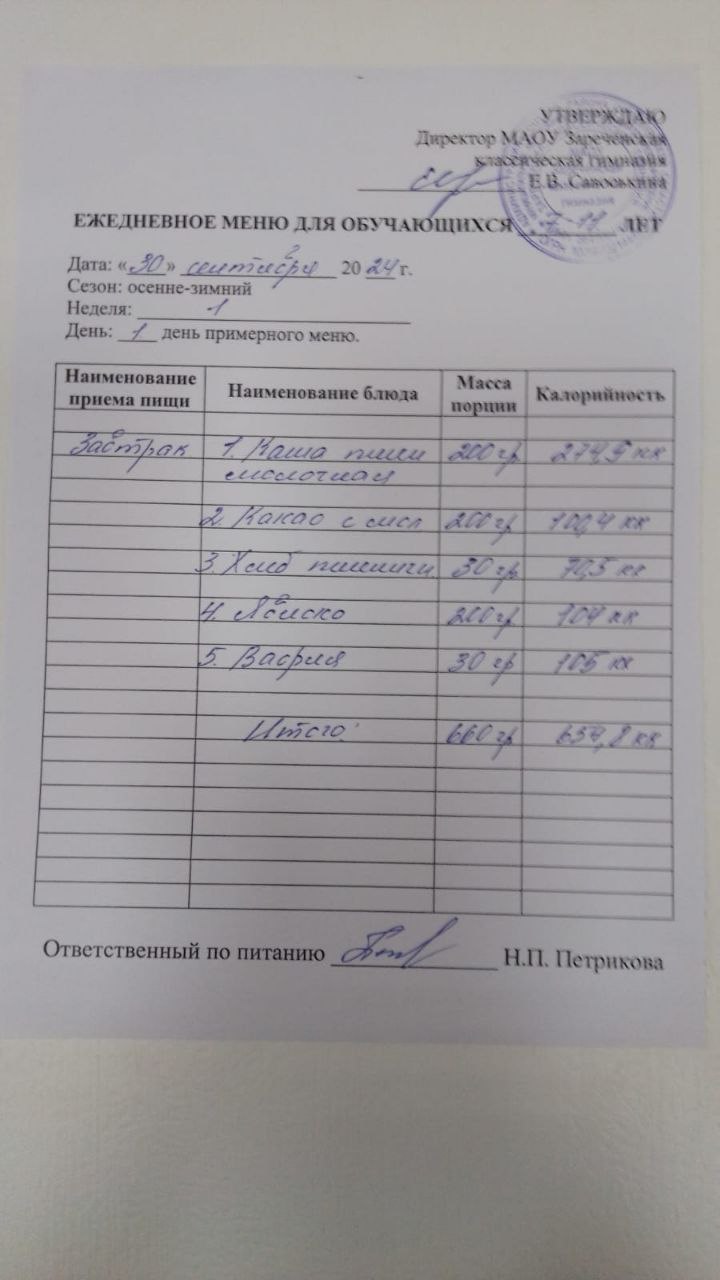 УТВЕРЖДАЮ
Директор МАОУ Зареченская
классическая гимназия
Е.В. Савоськина
ЕЖЕДНЕВНОЕ МЕНЮ ДЛЯ ОБУЧАЮЩИХСЯ 7-11 ЛЕТ
Дата: «30» сентября 2024 г.
Сезон: осенне-зимний
Неделя: 1
День: 1 день примерного меню.
Наименование приема пищи Наименование блюда Масса порции Калорийность
Завтрак 1. Каша пшен 200 гр 274,9 кк
молочная
2. Какао с мол 200 гр 100,4 кк
3. Хлеб пшенич 30 гр 70,5 кк
4. Яблоко 200 гр 104 кк
5. Вафля 30 гр 105 кк
Итого: 660 гр 654,8 кк
Ответственный по питанию Н.П. Петрикова